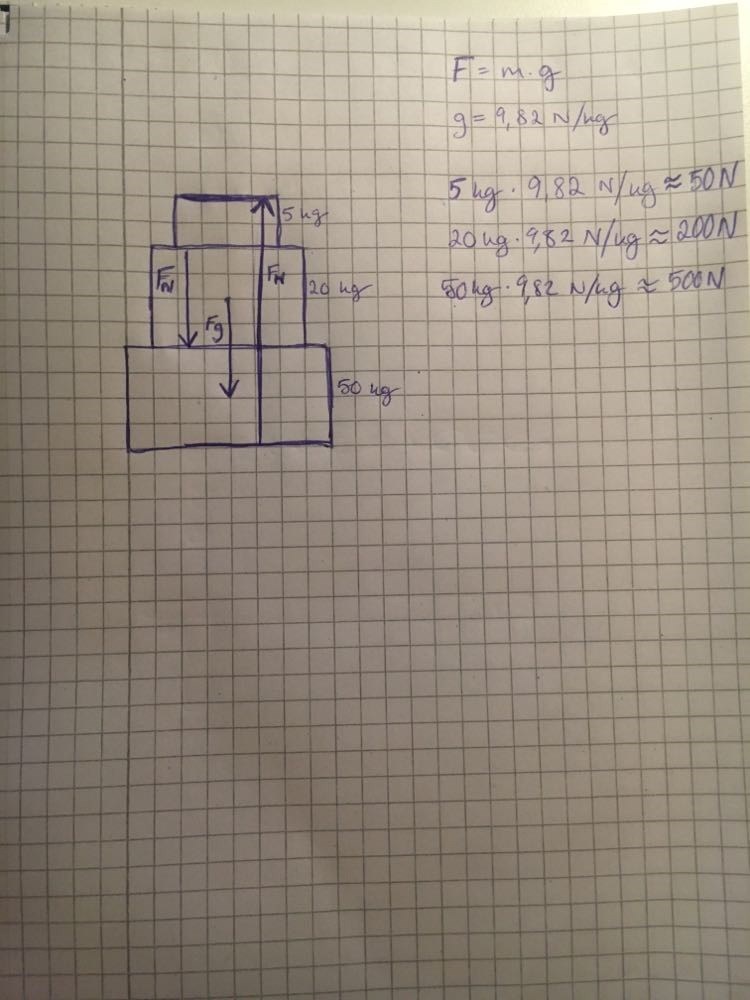 F = m · g
g = 9,82 N/kg
5 kg · 9,82 N/kg ≈ 50N
20 kg · 9,82 N/kg ≈ 200N
50 kg · 9,82 N/kg ≈ 500N
5 kg
FN
FN
20 kg
Fg
50 kg